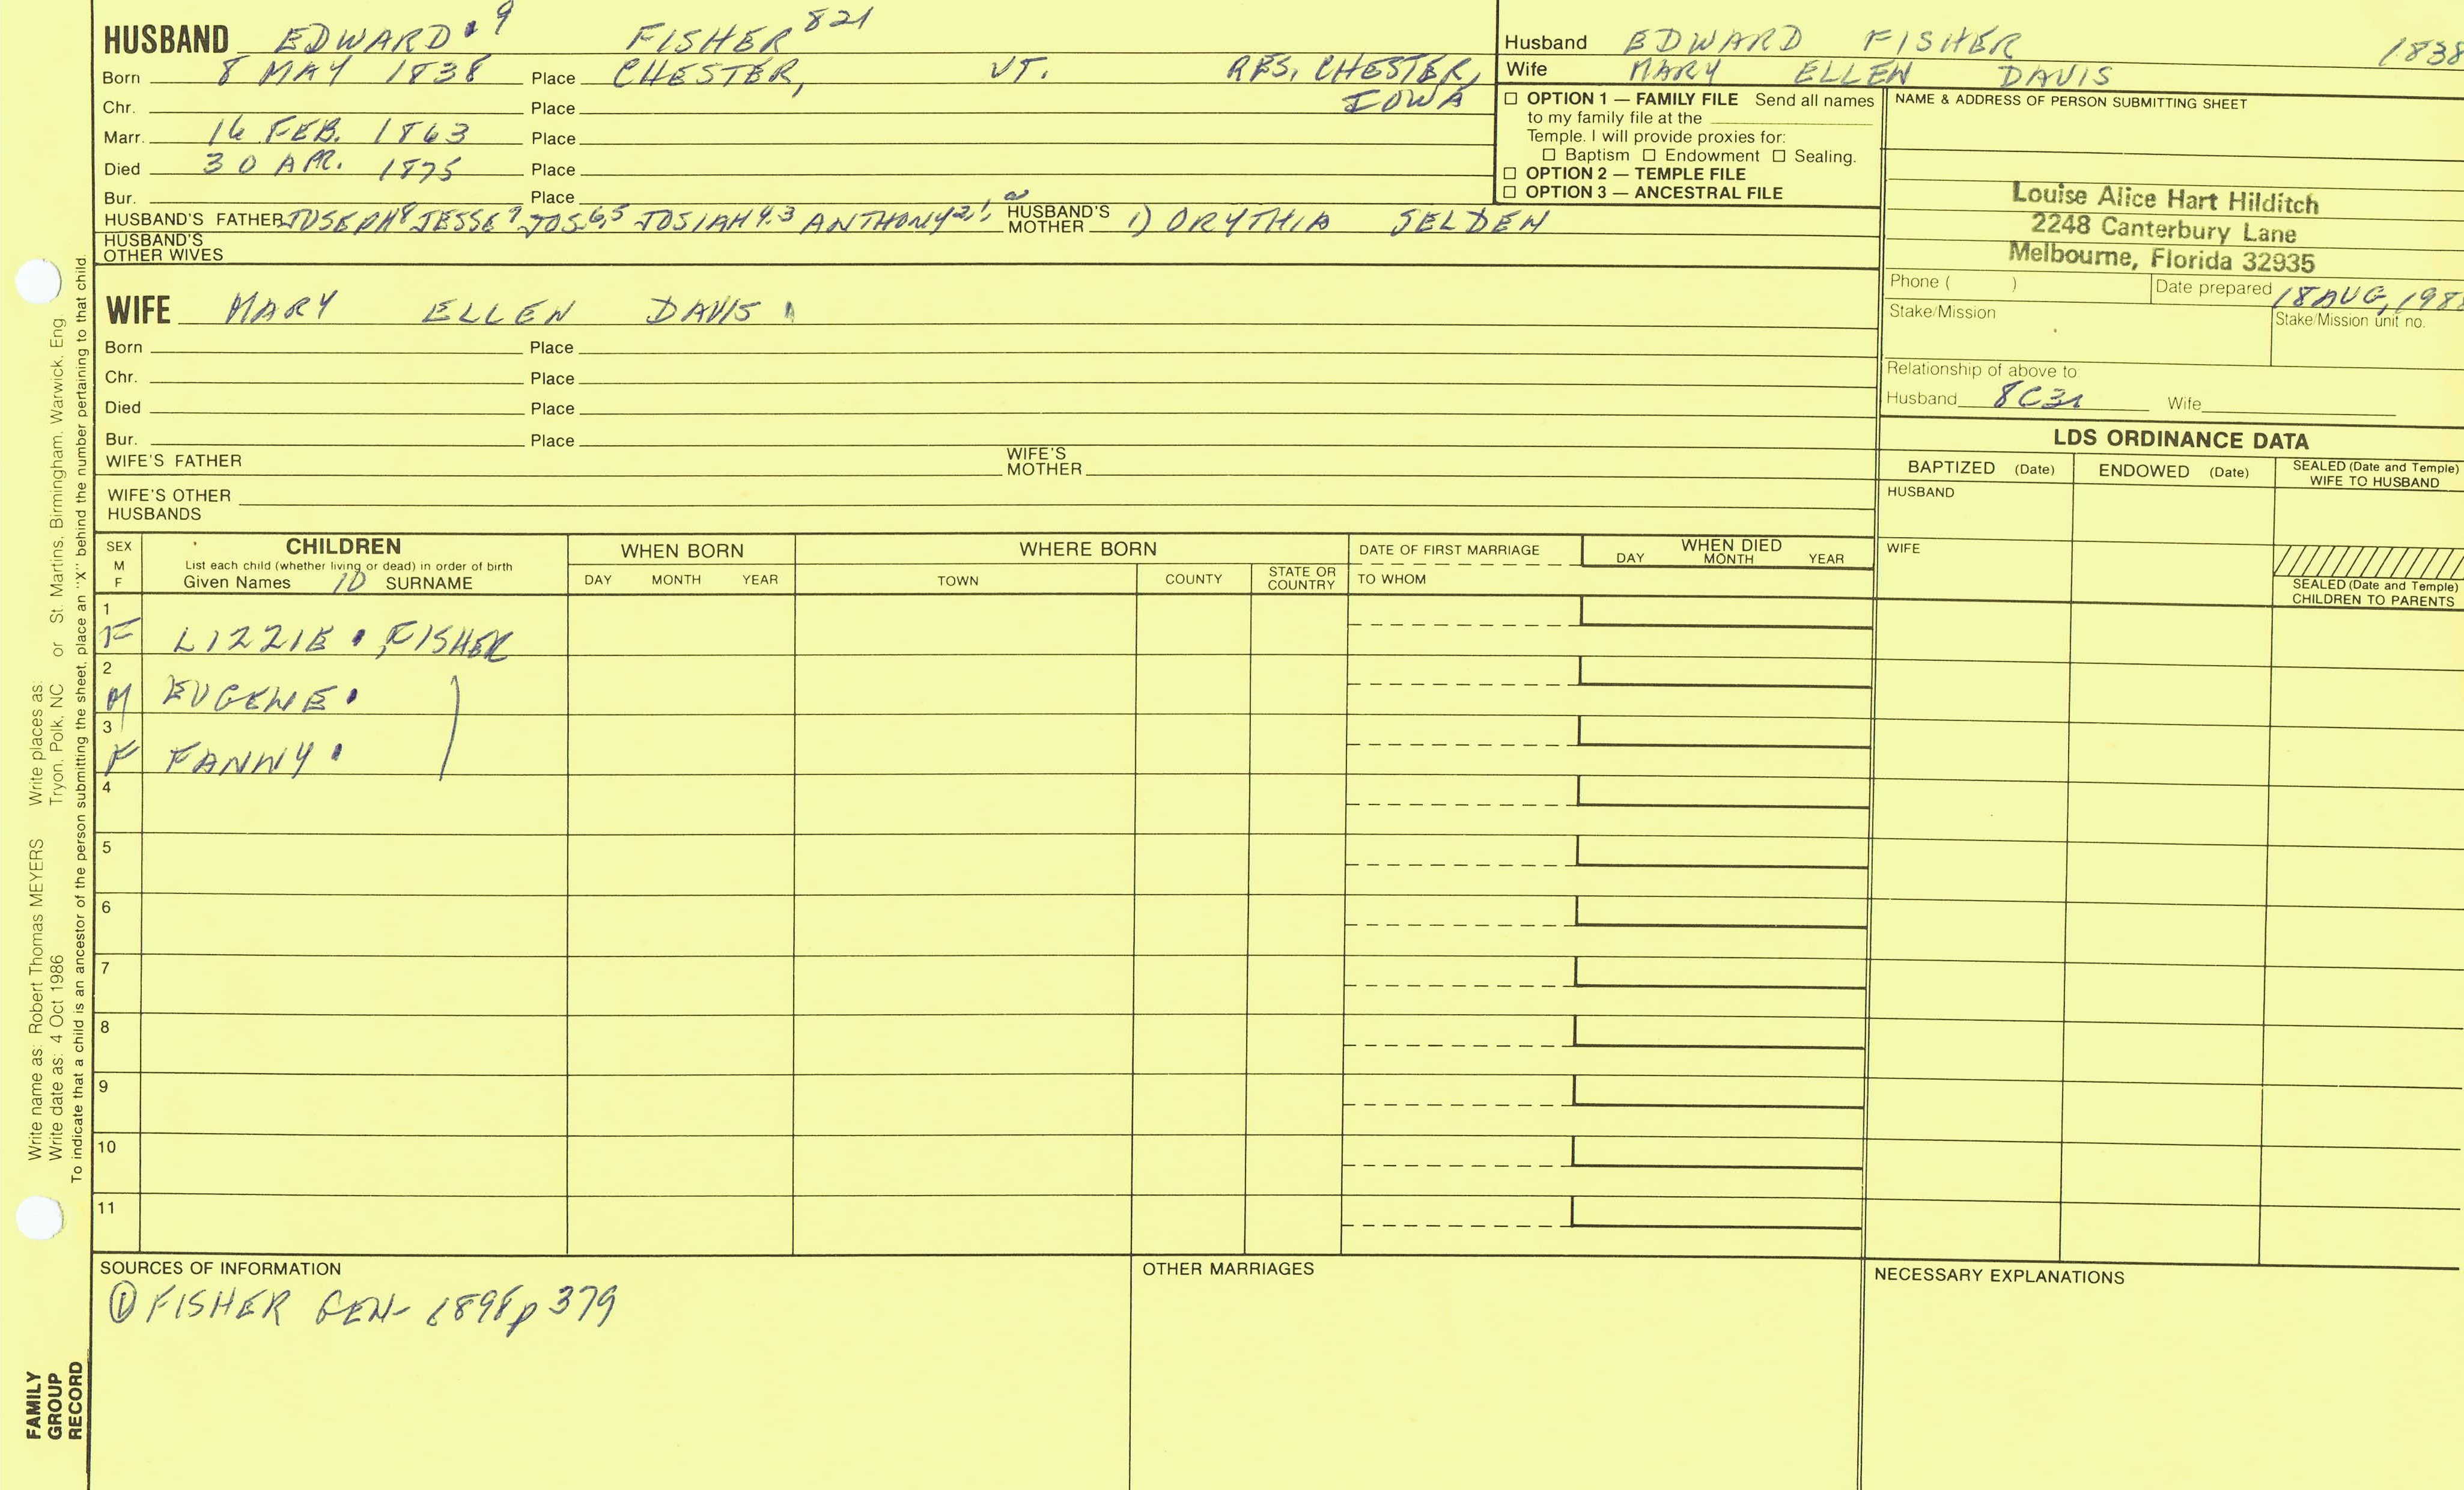 HUSBAND EDWARD 9 FISHER 821
Born 8 MAY 1838 Place CHESTER, VT. RES. CHESTER, IOWA
Chr. Place
Marr. 16 FEB. 1863 Place
Died 30 APR. 1875 Place
Bur. Place
HUSBAND'S FATHER JOSEPH 8 JESSE 7 JOS. 6,5 JOSIAH 4.3 ANTHONY 2,1 HUSBAND'S MOTHER 1) ORYTHIA SELDEN
HUSBAND'S OTHER WIVES
WIFE MARY ELLEN DAVIS
Born Place
Chr. Place
Died Place
Bur. Place
WIFE'S FATHER WIFE'S MOTHER
WIFE'S OTHER HUSBANDS
Husband EDWARD FISHER 1838
Wife MARY ELLEN DAVIS
☐ OPTION 1 — FAMILY FILE Send all names
to my family file at the
Temple. I will provide proxies for:
☐ Baptism ☐ Endowment ☐ Sealing.
☐ OPTION 2 — TEMPLE FILE
☐ OPTION 3 — ANCESTRAL FILE
NAME & ADDRESS OF PERSON SUBMITTING SHEET
Louise Alice Hart Hilditch
2248 Canterbury Lane
Melbourne, Florida 32935
Phone ( ) Date prepared 18 AUG, 198
Stake/Mission Stake/Mission unit no.
Relationship of above to:
Husband 8C3r Wife
LDS ORDINANCE DATA
BAPTIZED (Date) ENDOWED (Date) SEALED (Date and Temple) WIFE TO HUSBAND
HUSBAND
WIFE
SEALED (Date and Temple) CHILDREN TO PARENTS
SEX M F CHILDREN WHEN BORN WHERE BORN DATE OF FIRST MARRIAGE WHEN DIED
List each child (whether living or dead) in order of birth
Given Names 10 SURNAME DAY MONTH YEAR TOWN COUNTY STATE OR COUNTRY TO WHOM DAY MONTH YEAR
1
F LIZZIE FISHER
2
M EUGENE
3
F FANNY
4
5
6
7
8
9
10
11
SOURCES OF INFORMATION
① FISHER GEN- 1898 p 379
OTHER MARRIAGES
NECESSARY EXPLANATIONS
Write name as: Robert Thomas MEYERS Write places as:
Write date as: 4 Oct 1986 Tryon, Polk, NC or St. Martins, Birmingham, Warwick, Eng.
To indicate that a child is an ancestor of the person submitting the sheet, place an "X" behind the number pertaining to that child.
FAMILY
GROUP
RECORD